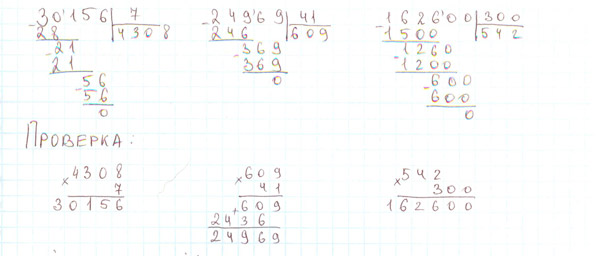 30'156 7
- 28 4308
21
- 21
56
- 56
0
249'69 41
- 246 609
369
- 369
0
1626'00 300
- 1500 542
1260
- 1200
600
- 600
0
ПРОВЕРКА:
4308
× 7
30156
609
× 41
609
+ 2436
24969
542
× 300
162600